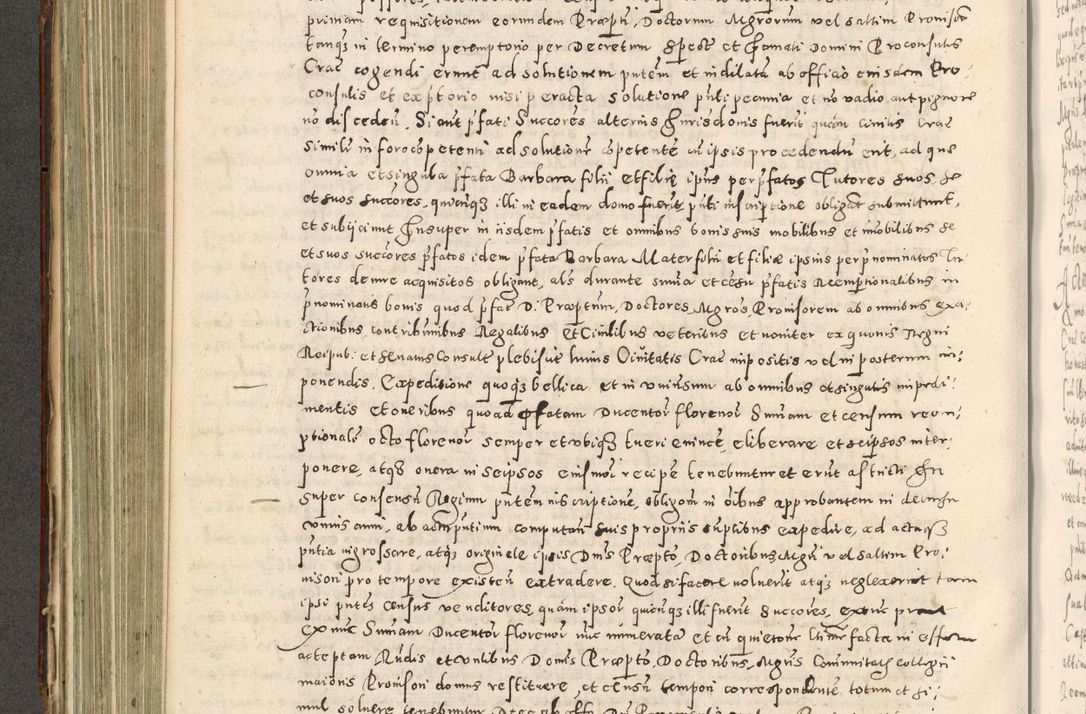 primam requisitionem eorundem Præpti, Doctorum Mgrorum vel saltim Provisor
tanq3 in termino peremptorio per Decretum Spect et Famati Domini Proconsulis
Crac cogendi erunt ad solutionem putem et indilata ab officio eiusdem Pro
consulis et exptorio nisi peracta solutione puti pecunia et no vadio aut pignore
no discedeu. Si aut pfati Succores alterius Jurisdonis fuerit quam Civilis Crac
Simili in foro copetenti ad solutione copetente cu ipsis procedendu erit, ad que
omnia et singula pfata Barbara filii et filie ipius per pfatos Tutores suos se
et suos succores, quicuq3 illi in eadem domo fuerit puti inscriptione obligat submittunt,
et subijciunt Insuper in iisdem pfatis et omnibus bonis suis mobilibus et imobilibus se
et suos succores pfatos idem pfata Barbara Mater filii et filiæ ipsius per pnominatos Tu
tores denuo acquisitos obligant, als durante suma et censu pfatis Reemptionalibus in
pnominatis bonis quod pfat D. Præptum, Doctores Mgros Provisorem ab omnibus exa
ctionibus contribunibus Regalibus et Civilibus veteribus et noviter ex quovis Regni
Reipub. et Senatus Consult plebiscit huius Civitatis Crac impositis vel in posterum im
ponendis. Expeditione quoq3 bellica et in vniuersum ab omnibus et singulis impedi
mentis et oneribus quoad pfatam Ducentor florenor Sumam et censum reem
ptionale octo florenor semper et vbiq3 tueri evince eliberare et seipsos inter
ponere, atq3 onera in seipsos eiusmoi recipe tenebuntur et erut astricti In
super consensu Regium putem inscriptione, obligom in oibus approbantem in decursu
vnius anni, ab actu putium computan suis proprijs suptibus expedire, ad actaq3
putia ingrossare, atq3 originele ipsis Dnis Præpto, Doctoribus, Mgri vel saltem Pro
visori pro tempore existen extradere. Quod si facere voluerit atq3 neglexerint tam
ipsi putes census venditores, quam ipsor quicuq3 illi fuerit Succores, ex tuc prout
ex nuc Sumam Ducentor florenor nuc numerata et cu quietone ltime facta in effctum
acceptam Rudis et vtilibus Domis Præpto, Doctoribus, Mgris Communitatis collegii
maioris Provisori domus restituere, et censu tempori correspondente totum et si
mul solvere tenebuntur